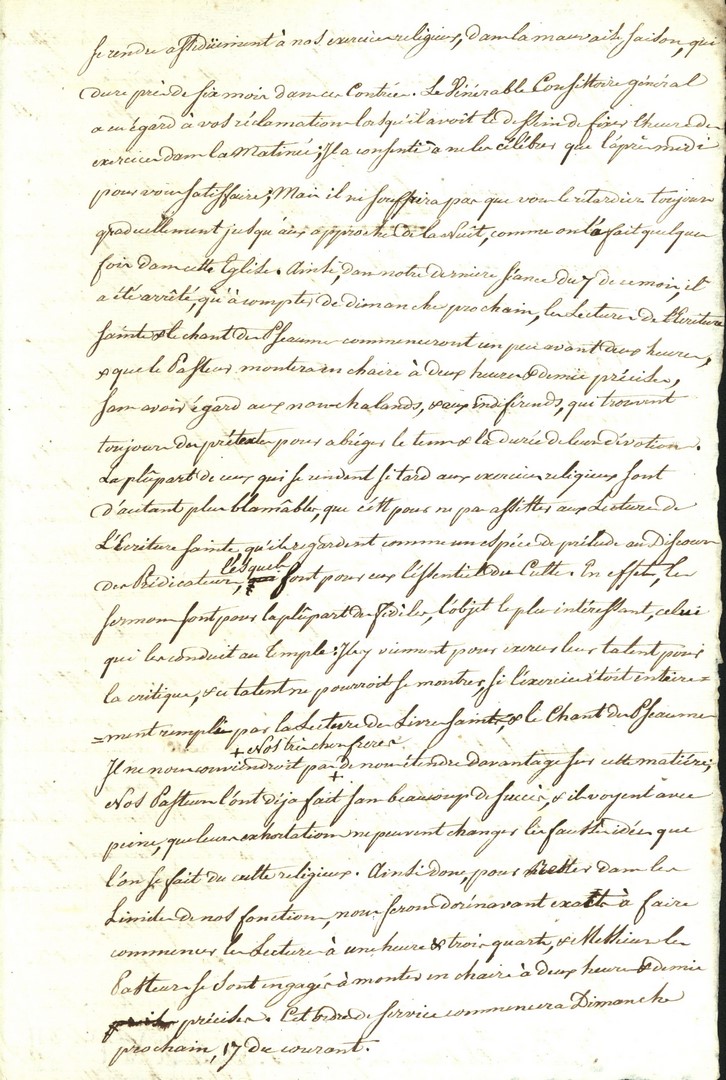 se rendre assidüement à nos exercices religieux, dans la mauvaise saison, qui
dure près de six mois dans ces Contrées. Le Vénérable Consistoire général
a eu égard à vos réclamations lorsqu'il avoit le dessein de fixer l'heure des
exercices dans la Matinée; Il a consenti à ne les célébrer que l'après-medi
pour vous satisfaire; Mais il ne souffrira pas que vous le retardiez toujours
graduellement jusqu'aux approches de la Nuit, comme on l'a fait quelques
fois dans cette Eglise. Ainsi, dans notre dernière séance du 7 de ce mois, il
a été arrêté, qu'à compter de dimanche prochain, les Lectures de l'Ecriture
sainte & le chant des Pseaumes commenceront un peu avant deux heures,
& que le Pasteur montera en chaire à deux heures & demie précises,
sans avoir égard aux nonchalands, & aux indiférends, qui trouvent
toujours des prétextes pour abréger le tems & la durée de leur dévotion.
La plûpart de ceux qui se rendent si tard aux exercices religieux sont
d'autant plus blamâbles, que c'est pour ne pas assister aux Lectures de
L'Ecriture sainte, qu'ils regardent comme un espéce de prélude au Discours
des Prédicateurs, lesquels font pour eux l'éssentiel du Culte. En effet, les
sermons sont pour la plûpart des fidéles, l'objet le plus intéressant, celui
qui les conduit au Temple: Ils y viennent pour exercer leurs talents pour
la critique, & ce talent ne pourroit se montrer, si l'éxercice étoit entière=
=ment rempli par la Lecture des Livres saints, & le Chant des Pseaumes
+ Nos très chers freres
Il ne nous conviendroit pas + de nous étendre davantage sur cette matiére;
Nos Pasteurs l'ont dija fait sans beaucoup de succès, & ils voyent avec
peine, que leurs exhortations ne peuvent changer les fausses idées que
l'on se fait du culte religieux. Ainsi donc, pour rester dans les
Limites de nos fonctions, nous serons dorénavant exacts à faire
commencer les Lectures à une heure & trois quarts, & Messieurs les
Pasteurs se sont engagés à monter en chaire à deux heures & demie
précises. Cet ordre de service commencera Dimanche
prochain, 17 du courant.